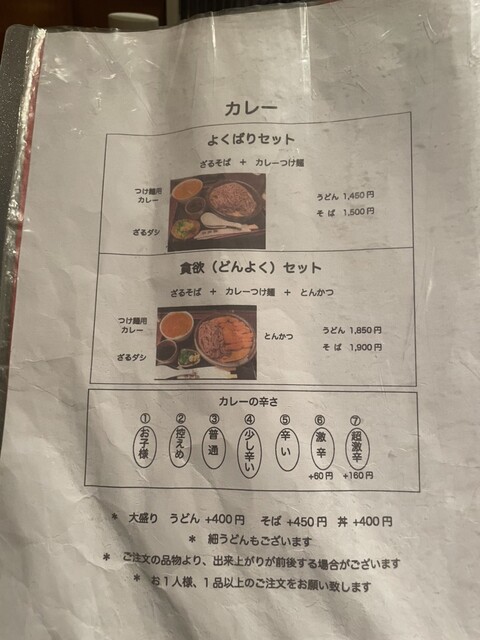 カレー
よくばりセット
ざるそば + カレーつけ麺
つけ麺用
カレー
ざるダシ
うどん 1,450円
そば 1,500円
貪欲（どんよく）セット
ざるそば + カレーつけ麺 + とんかつ
つけ麺用
カレー
ざるダシ
とんかつ
うどん 1,850円
そば 1,900円
カレーの辛さ
① お子様
② 控えめ
③ 普通
④ 少し辛い
⑤ 辛い
⑥ 激辛 +60円
⑦ 超激辛 +160円
* 大盛り うどん +400円 そば +450円 丼 +400円
* 細うどんもございます
* ご注文の品物より、出来上がりが前後する場合がございます
* お1人様、1品以上のご注文をお願い致します